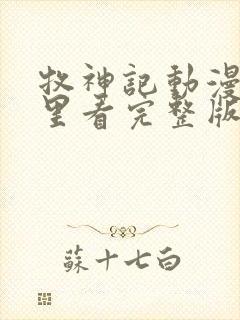 牧神記動漫
里看完整版
蘇十七白